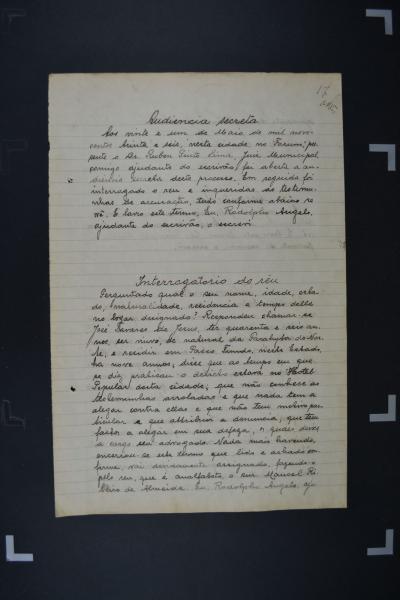 17
Audiencia secreta
Aos vinte e um de Maio de mil nove-
centos trinta e seis, nesta cidade no Forum, pre-
sente o Dr. Ruben Lima, Juiz Municipal,
comigo ajudante do escrivão, foi aberta a au-
diencia secreta deste processo. Em seguida foi
interrogado o reu e inqueridas as testemu-
nhas de accusação, tudo conforme abaixo se
vê. E lavro este termo, Eu, Rodolpho Angelo,
ajudante do escrivão, o escrevi.
Interrogatorio do réu
Perguntado qual o seu nome, idade, esta-
do, naturalidade, residencia e tempo della
no logar designado? Respondeu chamar-se
José Tavares de Jesus, ter quarenta e seis an-
nos, ser viuvo, de natural da Parahyba do Nor-
te, e residir em Passo Fundo, neste Estado,
ha nove annos; disse que ao tempo em que
se diz praticou o delicto estava no Hotel
Popular desta cidade; que não conhece as
testemunhas arroladas e que nada tem a
alegar contra ellas e que não tem motivo par-
ticular a que attribua a denuncia, que tem
factos a alegar em sua defeza, o quaes deixa
a cargo seu advogado. Nada mais havendo,
encerrou-se este termo que lido e achado con-
forme, vai devidamente assignado, fazendo-o
pelo reu, que é analfabeto, o snr. Manoel Ri-
beiro de Almeida. Eu, Rodolpho Angelo, aju-